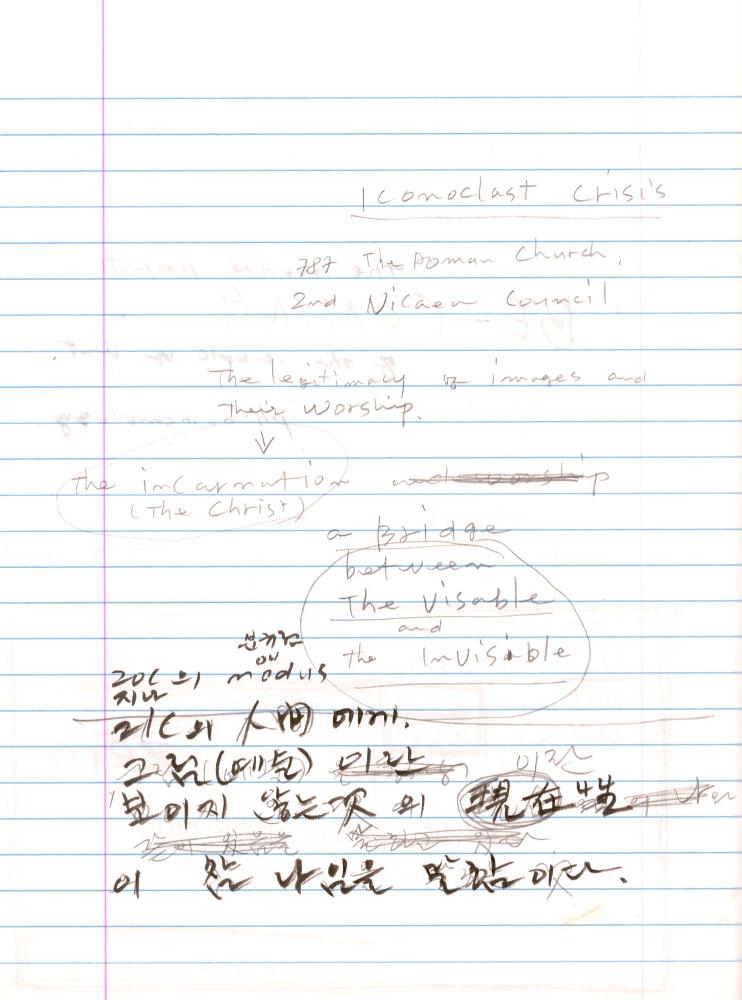 Iconoclast Crisis
787 The Roman Church,
2nd Nicaen Council
The legitimacy of images and
Their Worship.
↓
The incarnation
(The Christ)
a Bridge
between
The Visable
and
the Invisible
20C의 modus
지난
21C의 人間 에게.
그림(예술) 이란
보이지 않는 것의 現在性
이 참 나임을 말함이다.